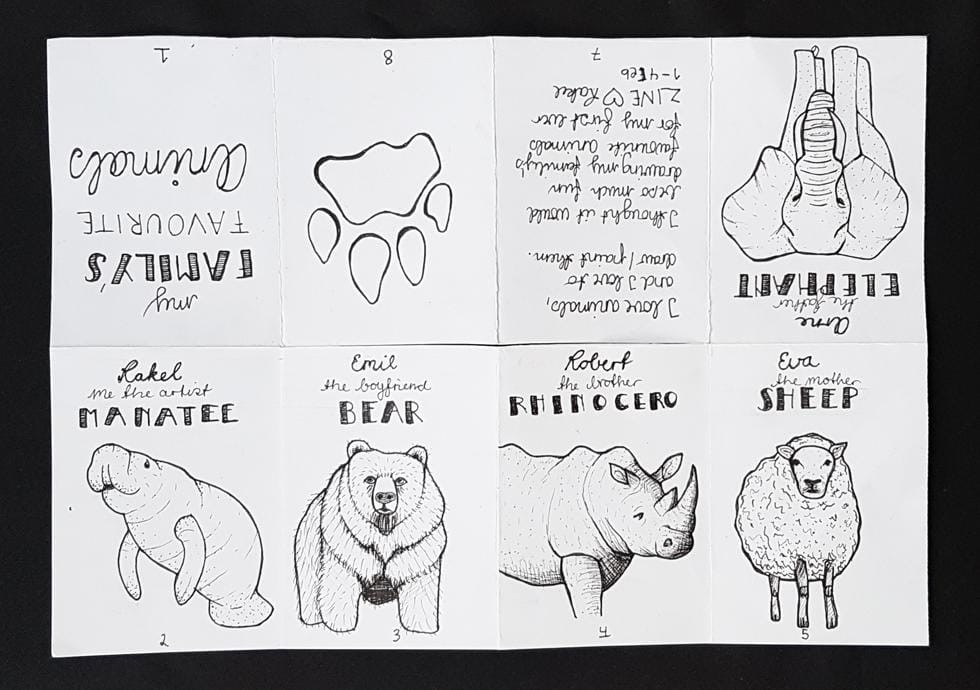 1
my
FAMILY'S
FAVOURITE
Animals
Rakel
me the artist
MANATEE
2
Emil
the boyfriend
BEAR
3
Robert
the brother
RHINOCERO
4
Eva
the mother
SHEEP
5
Arne
the father
ELEPHANT
7
I love animals,
and I love to
draw/paint them.
I thought it would
be so much fun
drawing my family's
favourite animals
for my first ever
ZINE ♡ Rakel
1-4 Feb
8